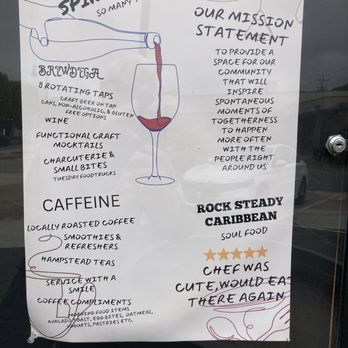 SPIR
SO MANY
BEWDGA
8 ROTATING TAPS
CRAFT BEER ON TAP
CANS, NON-ALCOHOLIC, & GLUTEN
FREE OPTIONS
WINE
FUNCTIONAL CRAFT
MOCKTAILS
CHARCUTERIE &
SMALL BITES
TUESDAY FOODTRUCKS
CAFFEINE
LOCALLY ROASTED COFFEE
SMOOTHIES &
REFRESHERS
HAMPSTEAD TEAS
SERVICE WITH A
SMILE
COFFEE COMPLIMENTS
MORNING FOOD ITEMS
AVACADO TOAST, EGG BITES, OATMEAL,
YOGURTS, PASTRIES ETC.
OUR MISSION
STATEMENT
TO PROVIDE A
SPACE FOR OUR
COMMUNITY
THAT WILL
INSPIRE
SPONTANEOUS
MOMENTS OF
TOGETHERNESS
TO HAPPEN
MORE OFTEN
WITH THE
PEOPLE RIGHT
AROUND US
ROCK STEADY
CARIBBEAN
SOUL FOOD
CHEF WAS
CUTE, WOULD EAT
THERE AGAIN